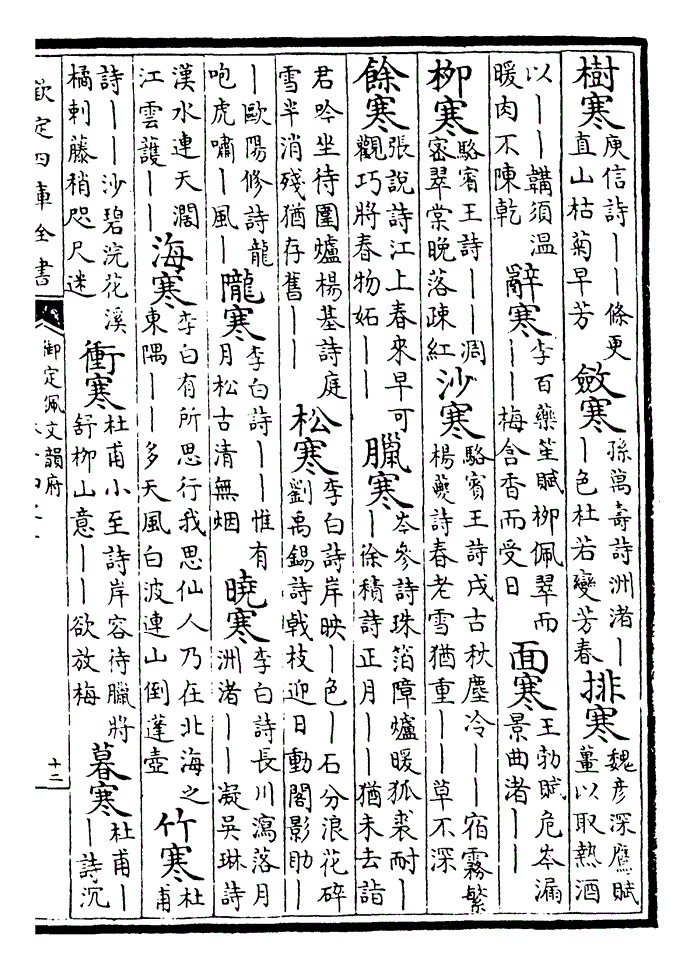 樹寒 庾信詩――條更直山枯菊早芳 斂寒 孫萬壽詩洲渚――色杜若變芳春 排寒 魏彥深鷹賦薑以取熱酒
以――韝須溫暖肉不陳乾 辭寒 李百藥笙賦柳佩翠而――梅含香而受日 面寒 王勃賦危岑漏景曲渚――
柳寒 駱賓王詩――凋密翠棠晚落疎紅 沙寒 駱賓王詩戍古秋塵冷――宿霧繁楊夔詩春老雪猶重――草不深
餘寒 張說詩江上春來早可觀巧將春物妬―― 臘寒 岑參詩珠箔障爐暖狐裘耐――徐積詩正月――猶未去詣
君吟坐待圍爐楊基詩庭雪半消殘猶存舊―― 松寒 李白詩岸映―色―石分浪花碎劉禹錫詩戟枝迎日動閣影助―
―歐陽修詩龍咆虎嘯―風― 隴寒 李白詩――惟有月松古清無烟 曉寒 李白詩長川瀉落月洲渚――凝吳琳詩
漢水連天濶江雲護―― 海寒 李白有所思行我思仙人乃在北海之東隅――多天風白波連山倒蓬壺 竹寒 杜甫
詩――沙碧浣花溪橘刺藤梢咫尺迷 衝寒 杜甫小至詩岸容待臘將舒柳山意――欲放梅 暮寒 杜甫――詩沉
欽定四庫全書
御定佩文韻府
十二